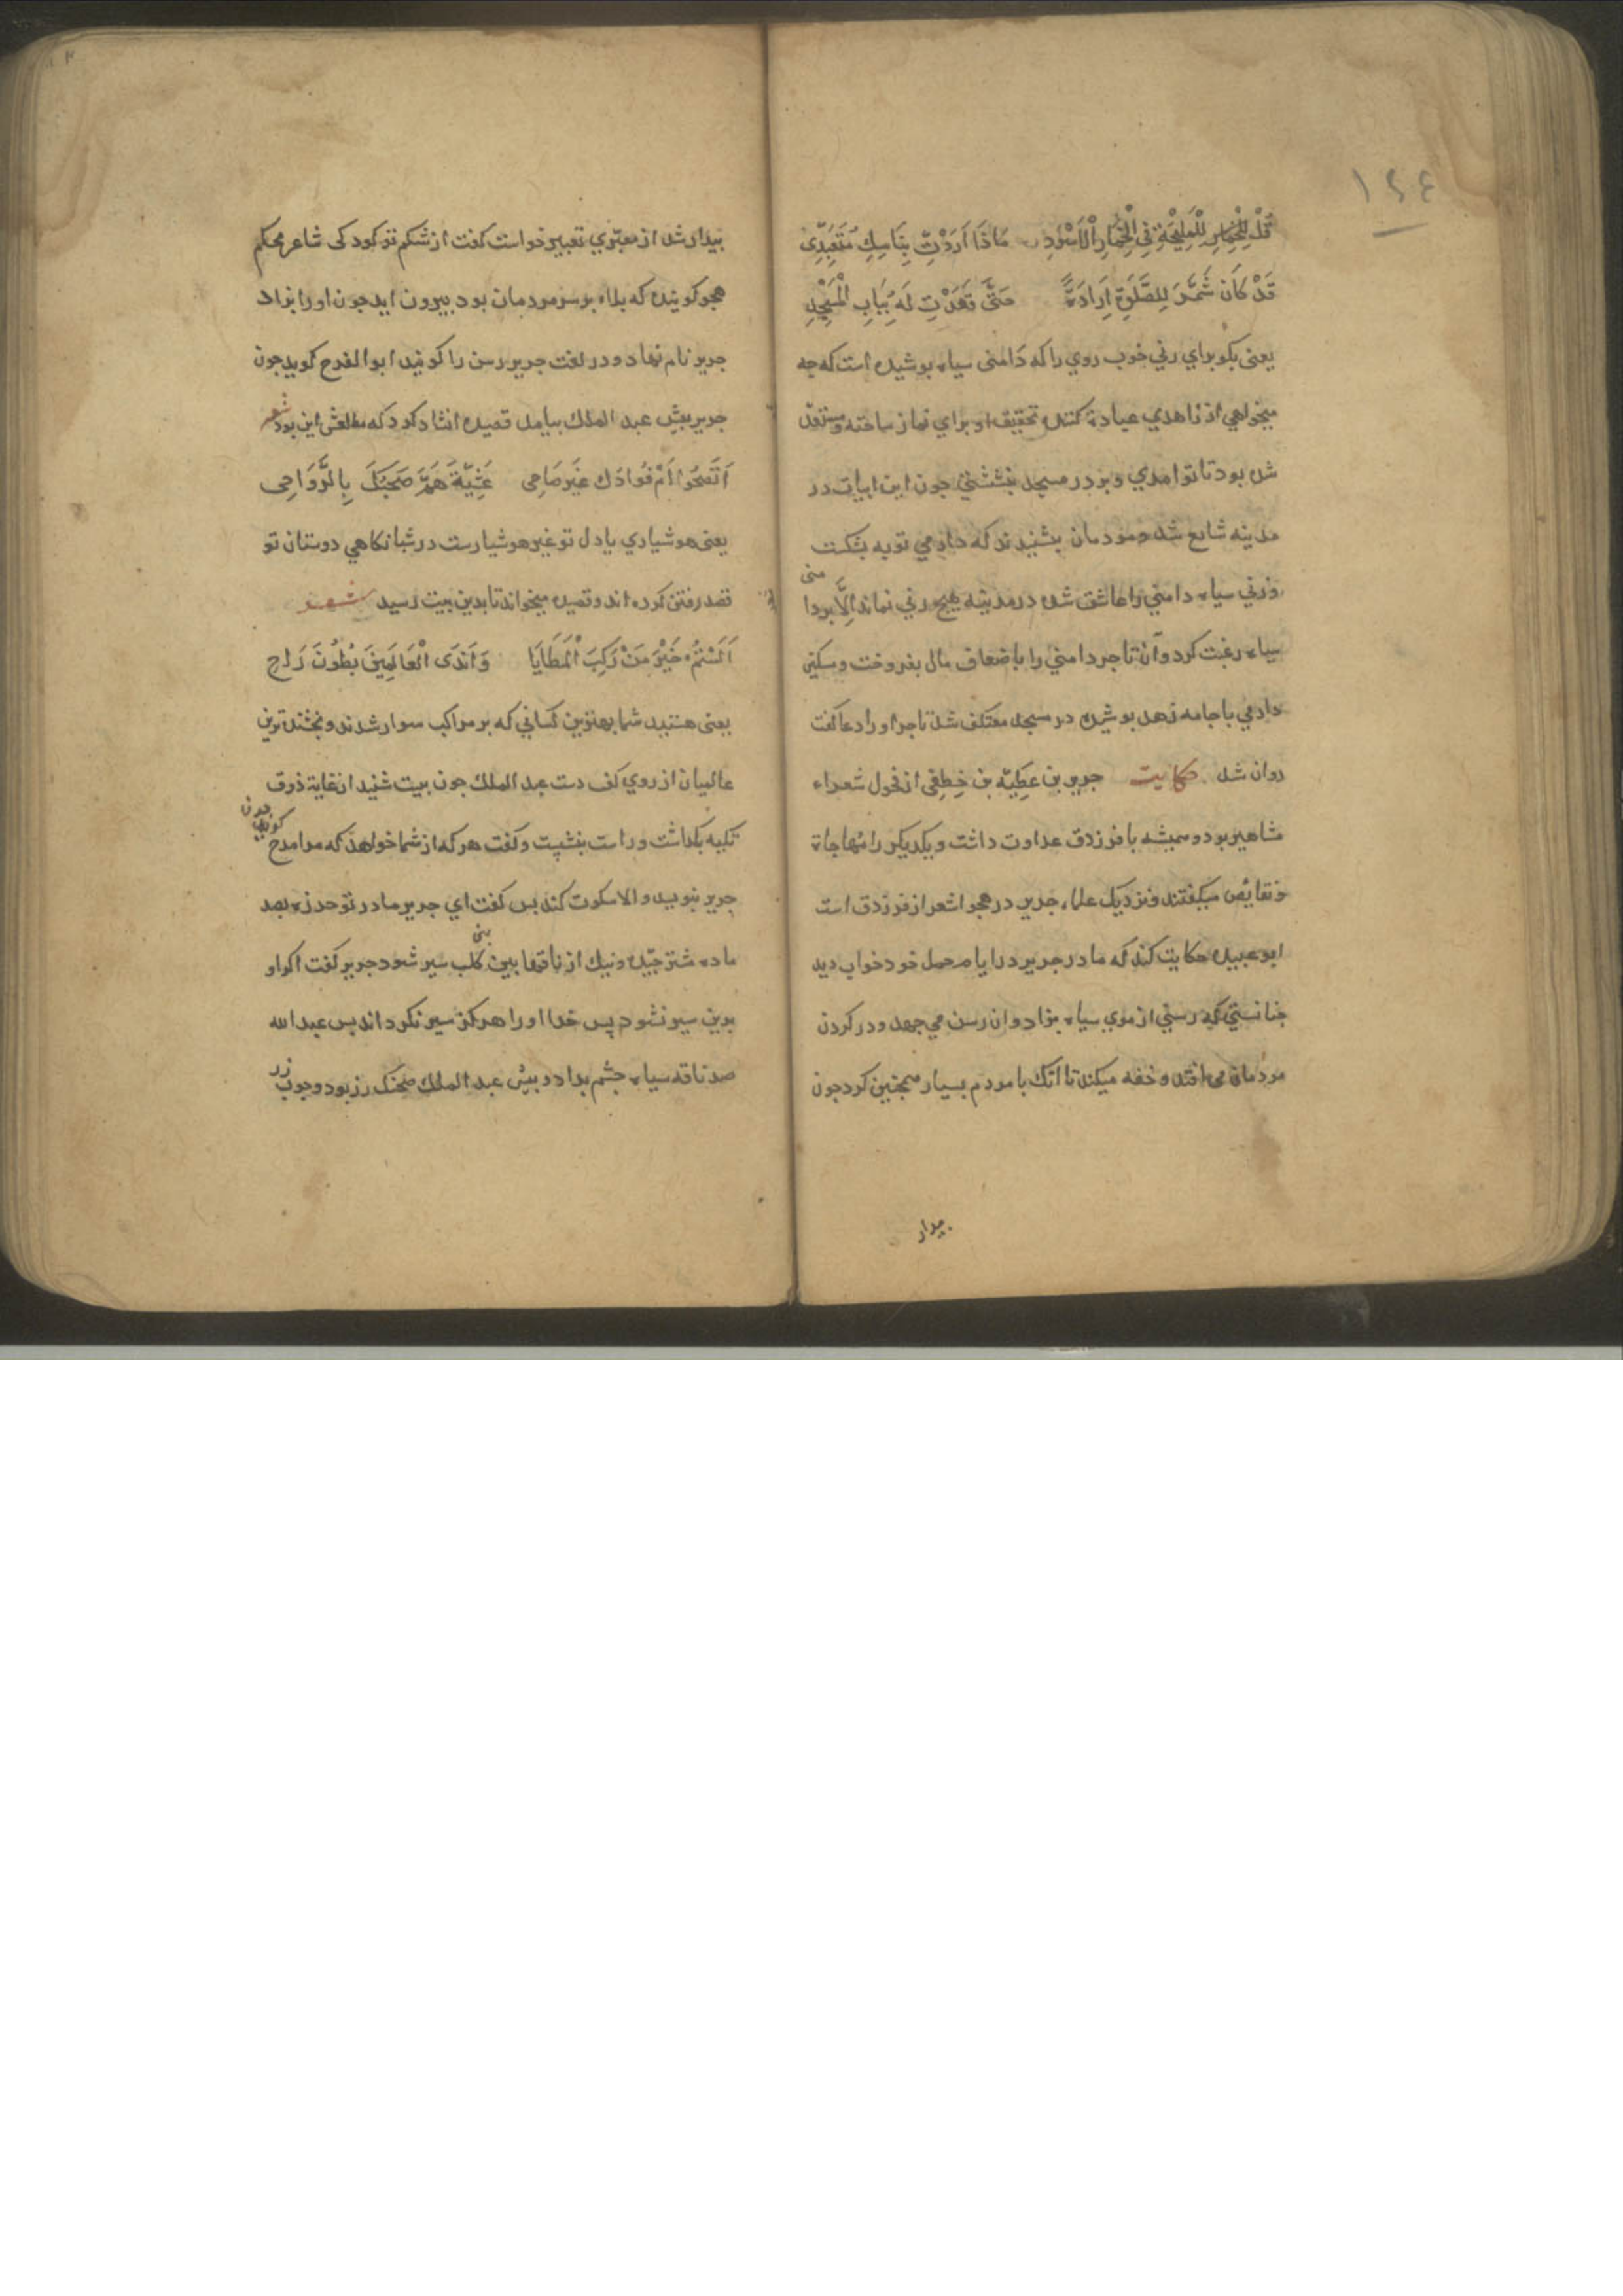 ١٤٤
قُلْ لِلْمَلِيْحَةِ فِي الْخِمَارِ الْاَسْوَدِ مَاذَا اَرَدْتِ بِنَاسِكٍ مُتَعَبِّدِی
قَدْ كَانَ شَمَّرَ لِلصَّلٰوةِ اِرَادَةً حَتَّی قَعَدْتِ لَهُ بِبَابِ الْمَسْجِدِ
یعنی بکو برای زنی خوب روی را که دامنی سیاه بوشیده است که جه
میخواهی از زاهدی عبادة کننده تحقیق او برای نماز ساخته و مستعد
شده بود تا تو امدی و بر در مسجد بنشستی جون این ابیات در
مدینه شایع شد مردمان بشنیدند که دارمی توبه بشکست
و زنی سیاه دامنی را عاشق شده در مدینه هیج زنی نماند اِلّا بر دا
منی
سیاه رغبت کرد و آن تاجر دامنی را باضعاف مال بفروخت و سکین
دارمی با جامه زهد بوشیده در مسجد معتکف شد تاجر او را دعا کفت
روان شد حکایت جریر بن عَطِیّه بن خِطِفِی از فحول شعراء
مشاهیر بود و همیشه با فرزدق عداوت داشت و یکدیکر را مهاجاة
و نقایض میکفتند و نزدیک علما، جریر در هجو اشعر از فرزدق است
ابو عبیده حکایت کند که مادر جریر در ایام حمل خود خواب دید
جنانستی که رسنی از موی سیاه بزاد و ان رسن می جهد و در کردن
مردمان می افتد و خفه میکند تا انک با مردم بسیار همجنین کرد جون
بیدار
بیدار شد از معبّری تعبیر خواست کفت از شکم تو کودکی شاعر محکم
هجو کوینده که بلاء بر سر مردمان بود بیرون اید جون او را بزاد
جریر نام نهاد و در لغت جریر رسن را کویند ابو الفرح کوید جون
جریر بیش عبد الملك بیامد قصیده انشاد کرد که مطلعش این بود شعر
اَتَصْحُوْا اَمْ فُوَادَكَ غَیْرَ صَاحِی عَشِیَّةَ هَمَّ صَحْبُكَ بِالرَّوَاحِی
یعنی هوشیاری یا دل تو غیر هوشیارست در شبانکاهی دوستان تو
قصد رفتن کرده اند و قصیده میخواند تا بدین بیت رسید شعر
اَلَسْتُمْ خَیْرَ مَنْ رَكِبَ الْمَطَایَا وَاَنْدَی الْعَالَمِیْنَ بُطُوْنَ رَاحِ
یعنی هستید شما بهترین کسانی که بر مراکب سوار شدند و بخشنده ترین
عالمیان از روی کف دست عبد الملك جون بیت شنید از غایة ذوق
تکیه بکذاشت و راست بنشست و کفت هر که از شما خواهد که مرا مدح
کوید جون
جریر بنویید والا سکوت کند بس کفت ای جریر مادر تو حرزه بصد
ماده شتر جیّده و نیك از ناقها بین کلب سیر شود جریر کفت اکر او
بنی
بدین سیر نشود پس خدا او را هرکز سیر نکرداند پس عبد الله
صد ناقه سیاه جشم بداد و بیش عبد الملك صحنك زر بود و جوب
زر